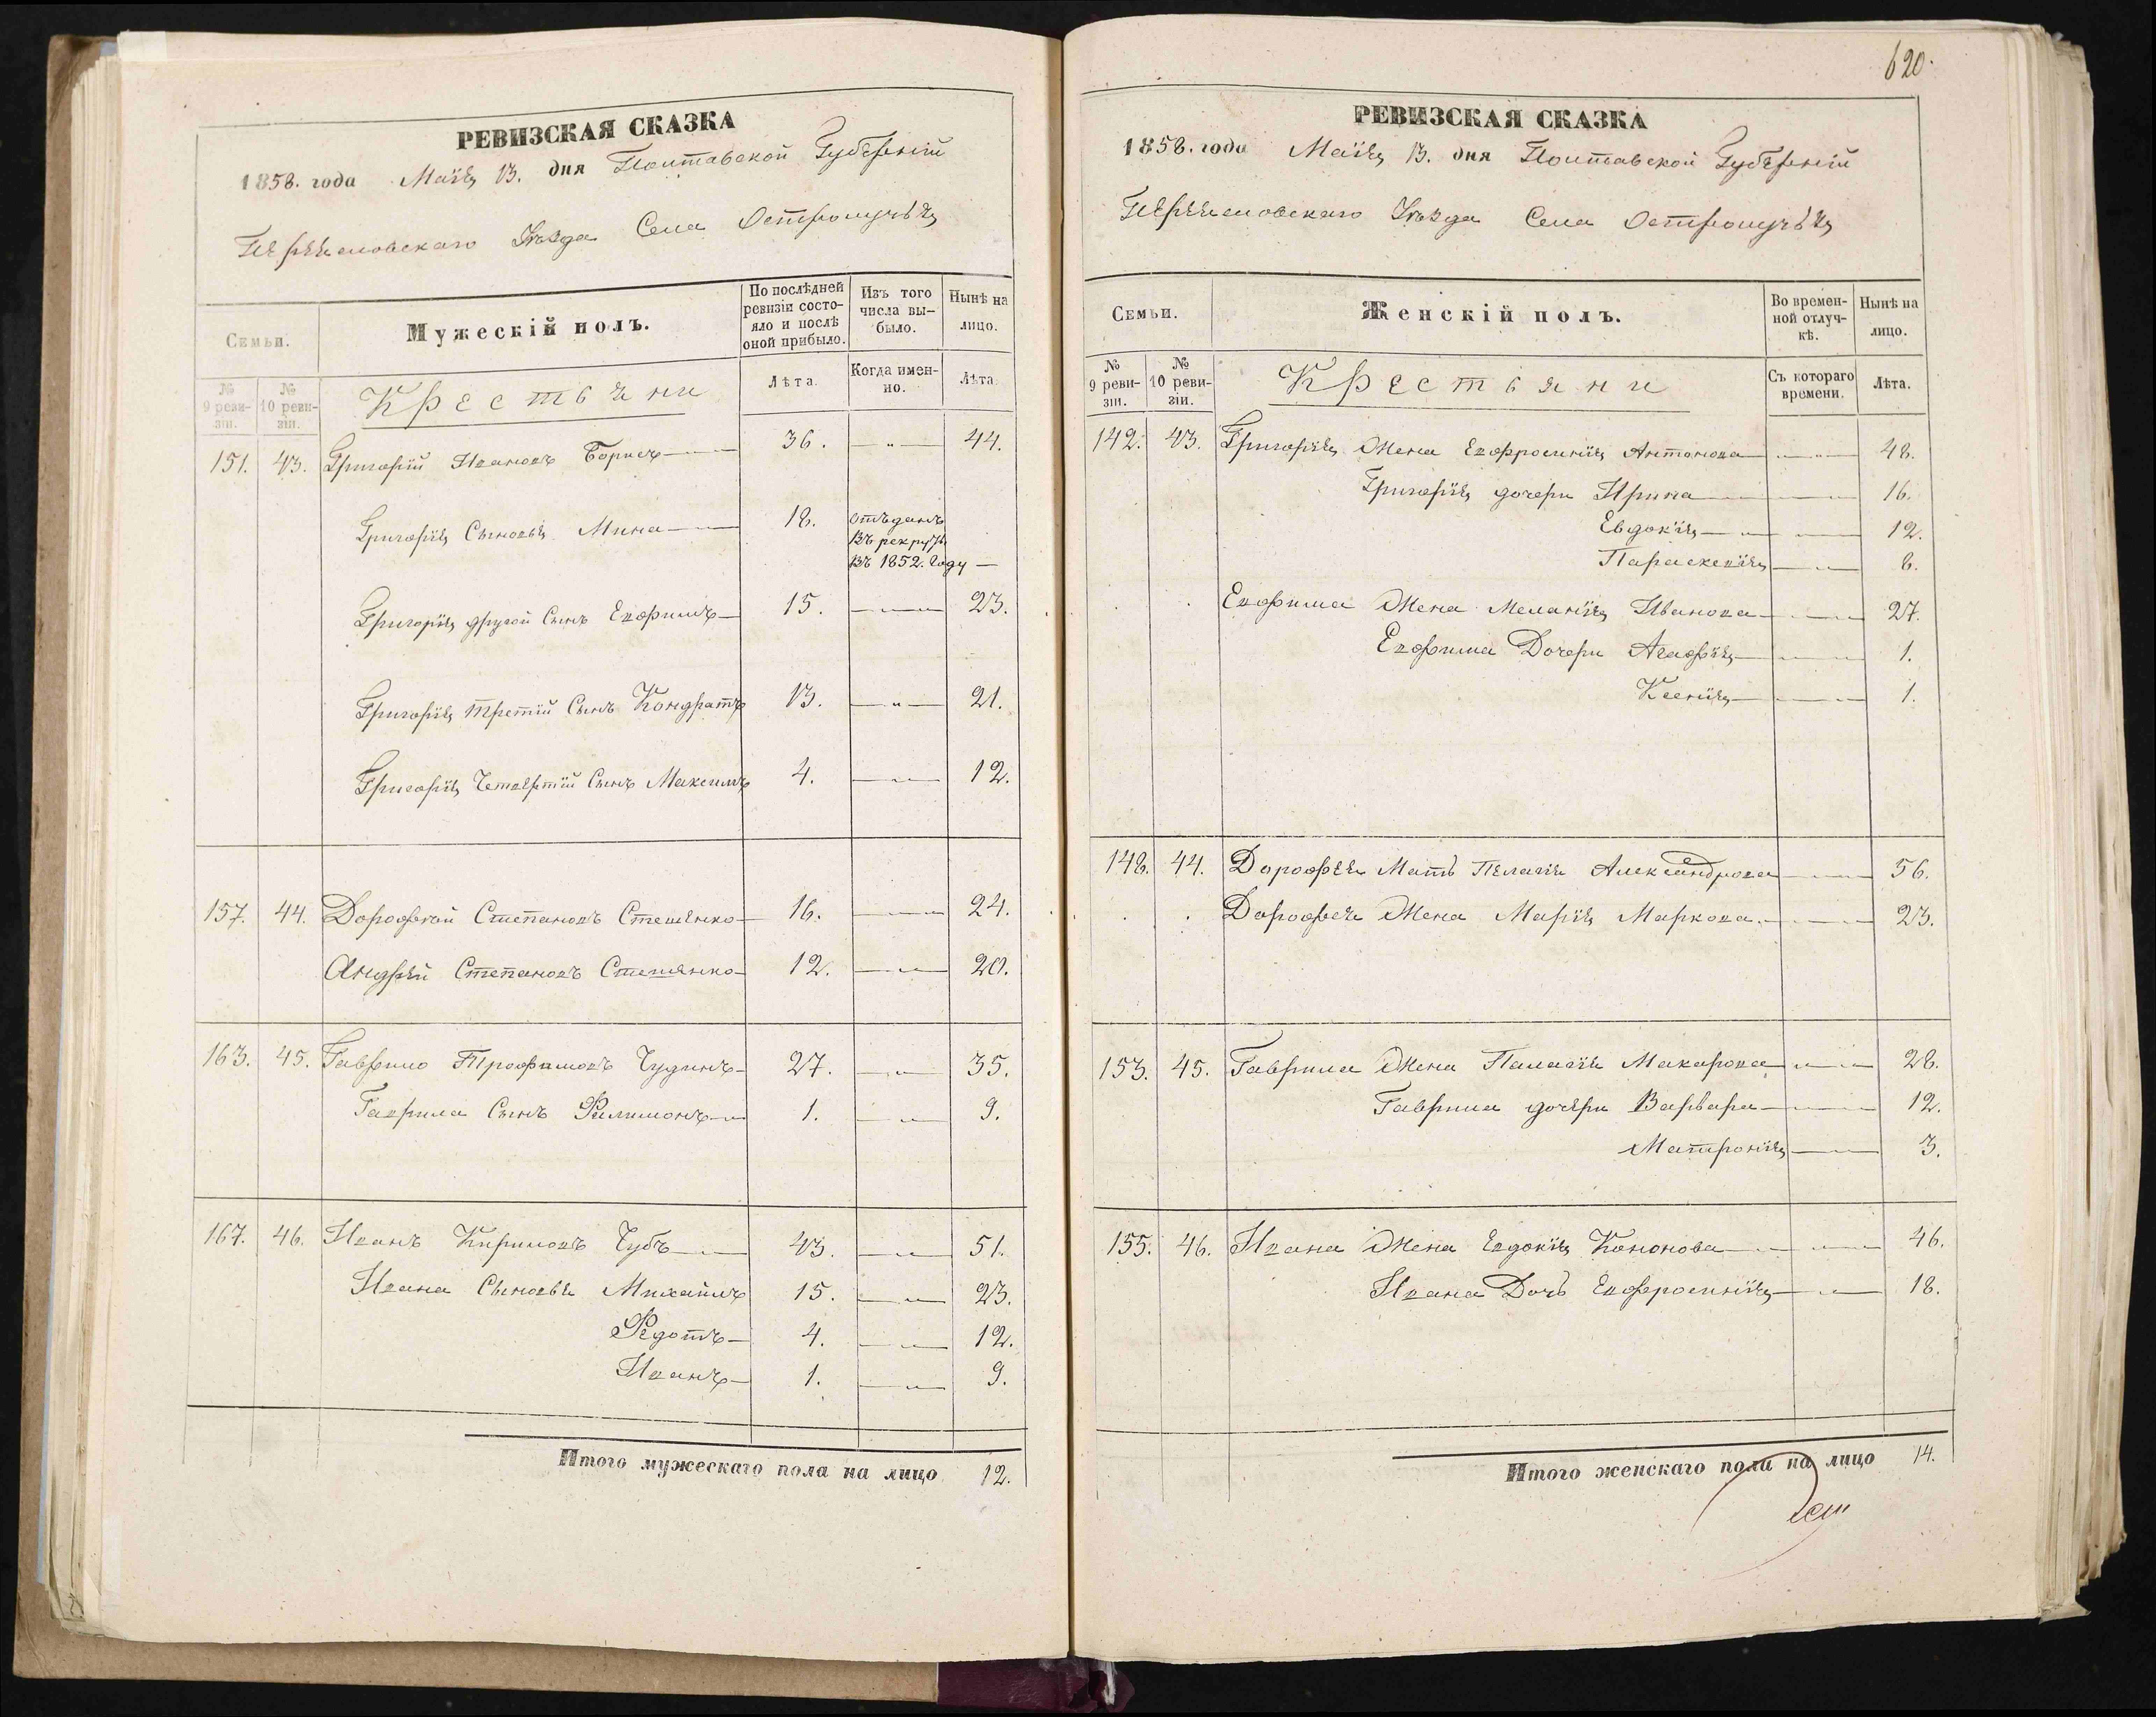 РЕВИЗСКАЯ СКАЗКА
1858. года Маія 13. дня Полтавской Губерніи
Переяславскаго Уѣзда Села Остролучья
Семьи.
Мужескій полъ.
По послѣдней ревизіи состояло и послѣ оной прибыло.
Изъ того числа выбыло.
Нынѣ на лицо.
№ 9 ревизіи.
№ 10 ревизіи.
Крестьяни
Лѣта.
Когда именно.
Лѣта.
151. 43. Григорій Ивановъ Борисъ 36. 44.
Григорія Сыновья Мина 18. отъданъ
въ рекруты
въ 1852. году
Григорія другой Сынъ Евфимъ 15. 23.
Григорія третій Сынъ Кондратъ 13. 21.
Григорія Четвертій Сынъ Максимъ 4. 12.
157. 44. Дорофѣй Степановъ Стешенко 16. 24.
Андрей Степановъ Стешенко 12. 20.
163. 45. Гаврило Трофимовъ Чудинъ 27. 35.
Гаврила Сынъ Филимонъ 1. 9.
167. 46. Иванъ Кириловъ Чубъ 43. 51.
Ивана Сыновья Михаилъ 15. 23.
Федотъ 4. 12.
Иванъ 1. 9.
Итого мужескаго пола на лицо 12.
620.
РЕВИЗСКАЯ СКАЗКА
1858. года Маія 13. дня Полтавской Губерніи
Переяславскаго Уѣзда Села Остролучья
Семьи.
Женскій полъ.
Во временной отлучкѣ.
Нынѣ на лицо.
№ 9 ревизіи.
№ 10 ревизіи.
Крестьяни
Съ котораго времени.
Лѣта.
142. 43. Григорія Жена Евфросинія Антонова 48.
Григорія дочери Ирина 16.
Евдокія 12.
Параскевія 8.
Евфима Жена Меланія Иванова 27.
Евфима Дочери Агафія 1.
Ксенія 1.
148. 44. Дорофея Мать Пелагія Александрова 56.
Дорофея Жена Марія Маркова 23.
153. 45. Гаврила Жена Палагія Макарова 28.
Гаврила дочери Варвара 12.
Матронія 3.
155. 46. Ивана Жена Евдокія Кононова 46.
Ивана Дочь Евфросинія 18.
Итого женскаго пола на лицо 14.